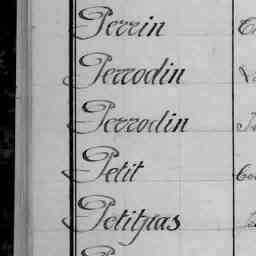 Perrin
Perrodin
Perrodin
Petit
Petitpas